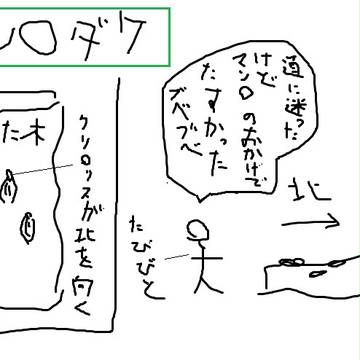 ンロダケ
道に迷った
けど
マンロのおかげで
たすかった
ズベブベ
北
たびびと
クリロッスが北を向く
た木